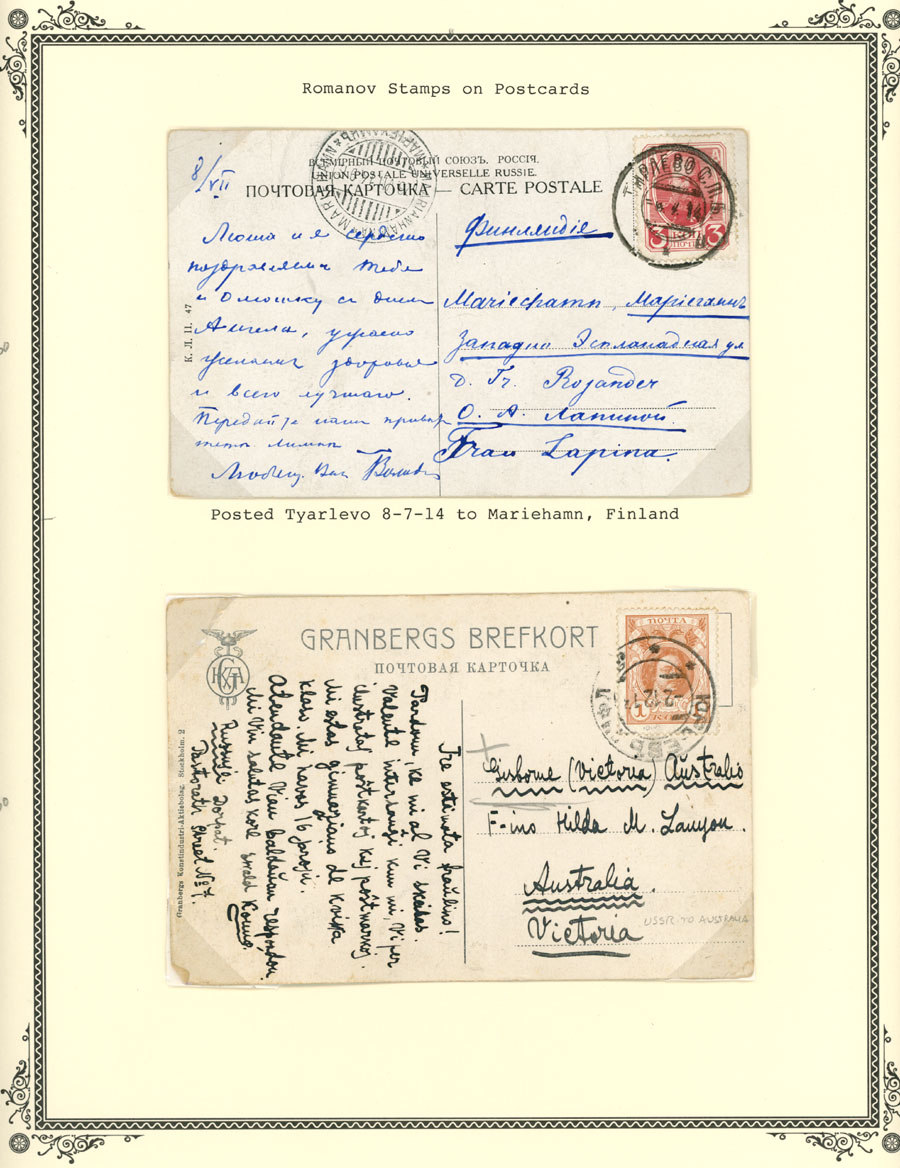 Romanov Stamps on Postcards
8/VII
ВСЕМІРНЫЙ ПОЧТОВЫЙ СОЮЗЪ. РОССІЯ.
UNION POSTALE UNIVERSELLE RUSSIE.
ПОЧТОВАЯ КАРТОЧКА — CARTE POSTALE
ТЯРЛЕВО С.П.Б.
3
К. Л. П. 47
Люша и я сердечно
поздравляемъ тебя
и с днем
Ангела,
здоровья
и всего лучшаго.
Передайте наши привѣт
тетѣ
Финляндія
Mariehamn, Маріегамнъ
Западно Эспланадная ул
д. Tr. Rojander
О. А. Лапиной.
Frau Lapina.
Posted Tyarlevo 8-7-14 to Mariehamn, Finland
GRANBERGS BREFKORT
ПОЧТОВАЯ КАРТОЧКА
ПОЧТА
1
Granbergs Konstindustri-Aktiebolag, Stockholm. 2
Tre estimata fraŭlino!
Pardonu, ke mi al Vi skribas.
Volente interŝanĝi kun mi, Vi per
ilustrataj poŝtkartoj kaj poŝtmarkoj.
Mi estas gimnaziano de kvina
klaso. Mi havas 16 jarojn.
Atendante Vian baldaŭan respondon
mi Vin salutas kore
Rusujo Dorpat.
Pastorath street No 7.
Gisborne (Victoria) Australio
F-ino Hilda M. Lanyon.
Australia.
Victoria
USSR TO AUSTRALIA